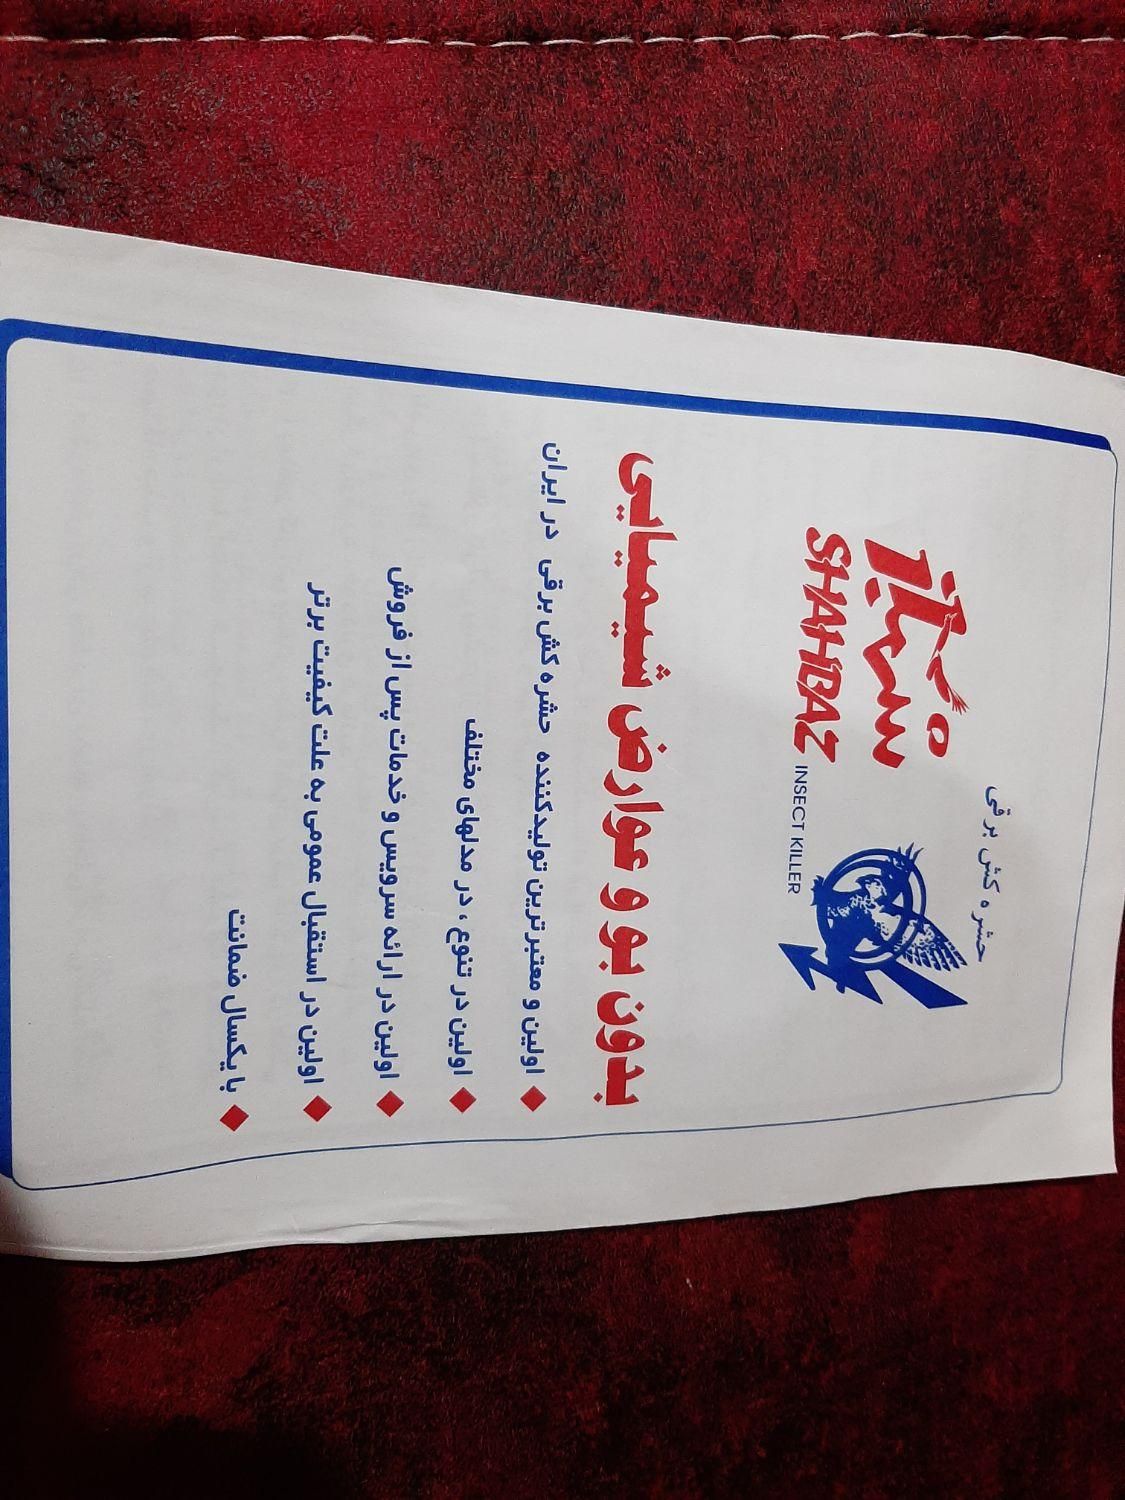 حشره کش برقی
شهباز
SHAHBAZ INSECT KILLER
بدون بو و عوارض شیمیایی
اولین و معتبرترین تولیدکننده حشره کش برقی در ایران
اولین در تنوع ، در مدلهای مختلف
اولین در ارائه سرویس و خدمات پس از فروش
اولین در استقبال عمومی به علت کیفیت برتر
با یکسال ضمانت